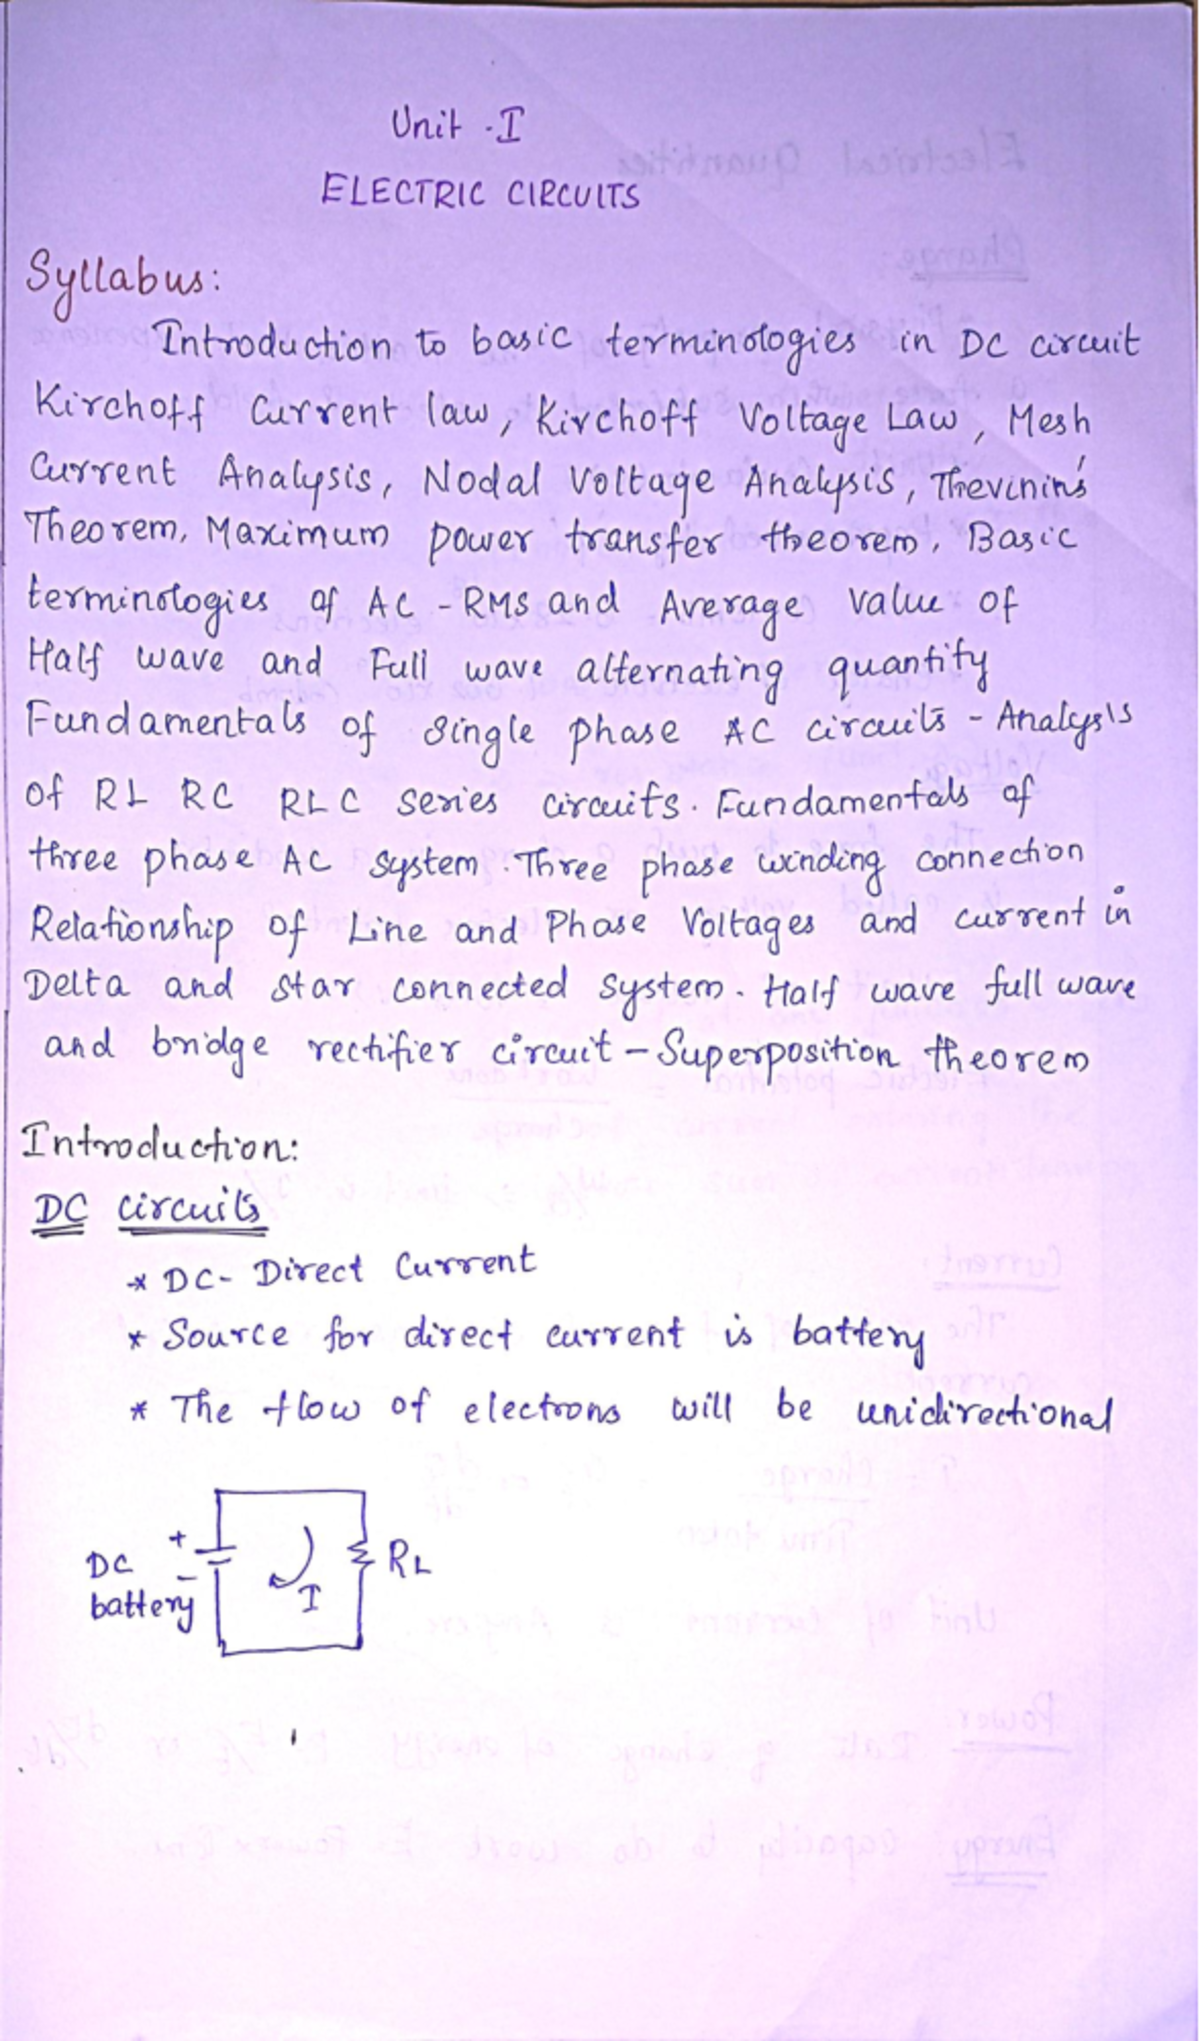 Unit - I
ELECTRIC CIRCUITS
Syllabus:
Introduction to basic terminologies in DC circuit
Kirchoff Current law, Kirchoff Voltage Law, Mesh
Current Analysis, Nodal Voltage Analysis, Thevinin's
Theorem, Maximum power transfer theorem, Basic
terminologies of AC - RMS and Average value of
Half wave and Full wave alternating quantity
Fundamentals of single phase AC circuits - Analysis
of RL RC RLC series circuits. Fundamentals of
three phase AC system. Three phase winding connection
Relationship of Line and Phase Voltages and current in
Delta and star connected system. Half wave full wave
and bridge rectifier circuit - Superposition theorem
Introduction:
DC circuits
* DC - Direct Current
* Source for direct current is battery
* The flow of electrons will be unidirectional
DC battery
+
-
I
RL